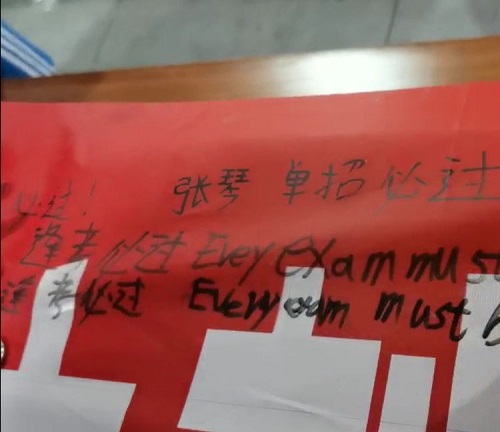 必过! 张琴 单招必过
逢考必过 Evey exam mus
逢考必过 Every exam must b